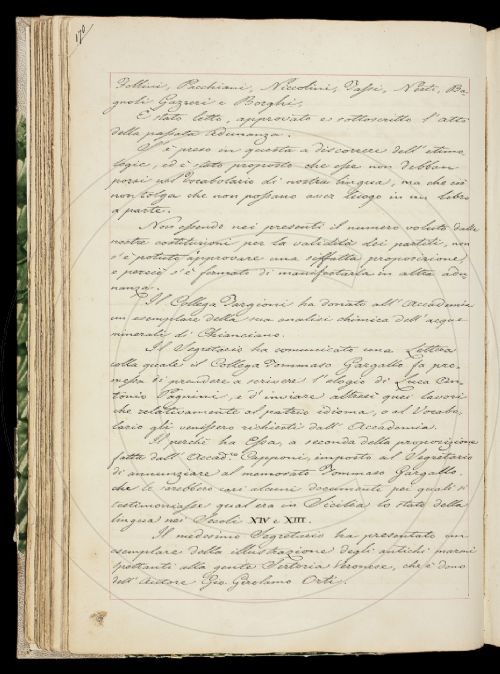 170
Follini, Pacchiani, Niccolini, Tassi, Nesti, Ba-
gnoli Gazzeri e Borghi.
È stato letto, approvato e sottoscritto l'atto
della passata Adunanza.
S'è preso in questa a discorrere dell'etimo
logie, ed è stato proposto che esse non debban
porsi nel Vocabolario di nostra lingua, ma che ciò
non tolga che non possano aver luogo in un libro
a parte.
Non essendo nei presenti il numero voluto dalle
nostre costituzioni per la validità dei partiti, non
s'è potuto approvare una siffatta proposizione,
e perciò s'è fermato di manifestarla in altra adu-
nanza.
Il Collega Targioni ha donato all'Accademia
un esemplare della sua analisi chimica dell'acque
minerali di Chianciano.
Il Segretario ha comunicato una Lettera
colla quale il Collega Tommaso Gargallo fa pro-
messa di prendere a scrivere l'elogio di Luca An-
tonio Pagnini, e d'inviare altresì quei lavori
che relativamente al patrio idioma, o al Vocabo-
lario gli venissero richiesti dall'Accademia.
Il perchè ha Essa, a seconda della proposizione
fatta dall'Accad.co Capponi, imposto al Segretario
di annunziare al memorato Tommaso Gargallo,
che le sarebbero cari alcuni documenti pei quali si
testimoniasse qual era in Sicilia lo stato della
lingua nei Secoli XIV e XIII.
Il medesimo Segretario ha presentato un
esemplare della illustrazione degli antichi marmi
spettanti alla gente Sertoria Veronese, che è dono
dell'Autore Gio. Girolamo Orti.